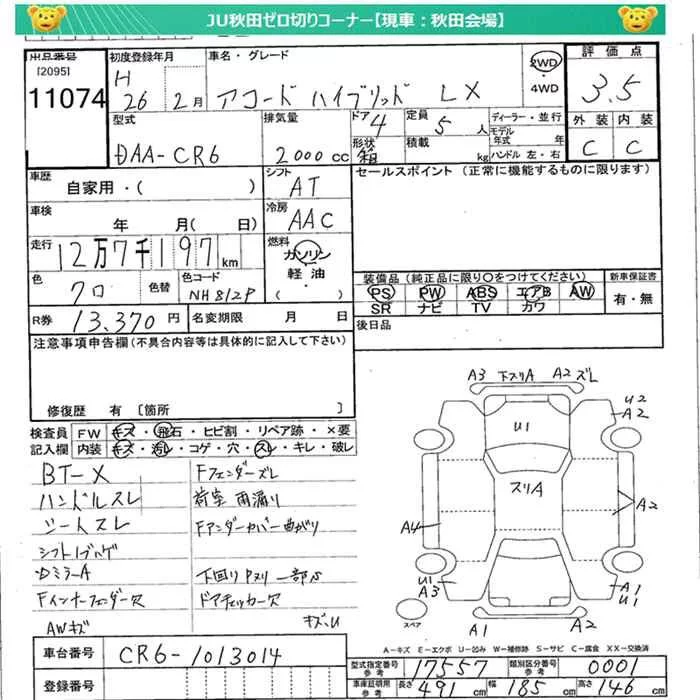 JU秋田ゼロ切りコーナー【現車：秋田会場】
出品番号
[2095]
11074
初度登録年月
H
26 2月
車名・グレード
アコード ハイブリッド LX
2WD
・
4WD
評価点
3.5
外装 内装
C C
型式
DAA-CR6
排気量
2000cc
ドア
4
形状
箱
定員
5人
積載
kg
ディーラー・並行
モデル
年式 年
ハンドル 左・右
車歴
自家用・( )
シフト
AT
セールスポイント (正常に機能するものに限ります)
車検
年 月( 日)
冷房
AAC
走行
12万7千197km
燃料
ガソリン
軽油
( )
色
クロ
色替
色コード
NH812P
装備品(純正品に限り○をつけてください)
PS PW ABS エアB AW
SR ナビ TV カワ
新車保証書
有・無
R券
13,370円
名変期限 月 日
後日品
注意事項申告欄(不具合内容等は具体的に記入して下さい)
修復歴 有 [箇所 ]
検査員
記入欄
FW キズ・飛石・ヒビ割・リペア跡・×要
内装 キズ・汚レ・コゲ・穴・スレ・キレ・破レ
BT-X
ハンドルスレ
シートスレ
シフトノブハゲ
DミラーA
Fインナーフェンダー欠
AWキズ
Fフェンダーズレ
荷室 雨漏り
Fアンダーカバー曲がり
下回りPヌリ一部S
ドアチェッカー欠
キズ、U
A3 下スリA A2 ズレ
U2
A2
U1
スリA
A2
A4
U1
A3
A1
U1
スペア
A1 A2
A－キズ E－エクボ U－凹み W－補修跡 S－サビ C－腐食 XX－交換済
車台番号
CR6-1013014
登録番号
型式指定番号
参考
17557
類別区分番号
参考
0001
車庫証明用
参考
長さ 491cm 幅 185cm 高さ 146cm